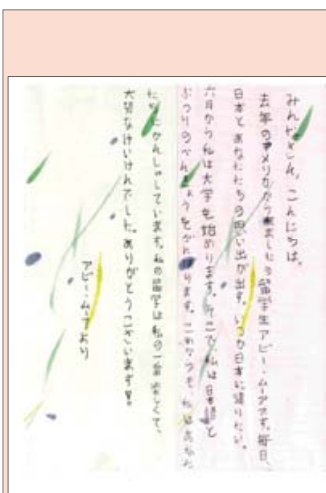 みんなさん、こんにちは。
去年のアメリカから来ました留学生アビー・ムーアです。毎日、
日本とあなたたちの思い出が出す。いつか日本に帰りたい。
六月から私は大学を始めります。そこで、私は日本語と
ぶつりのべんきょうをがんばります。いつも、私はあなた
たちにかんしゃしています。私の留学は私の一番楽しくて、
大切なけいけんでした。ありがとうございます。
アビー・ムーアより